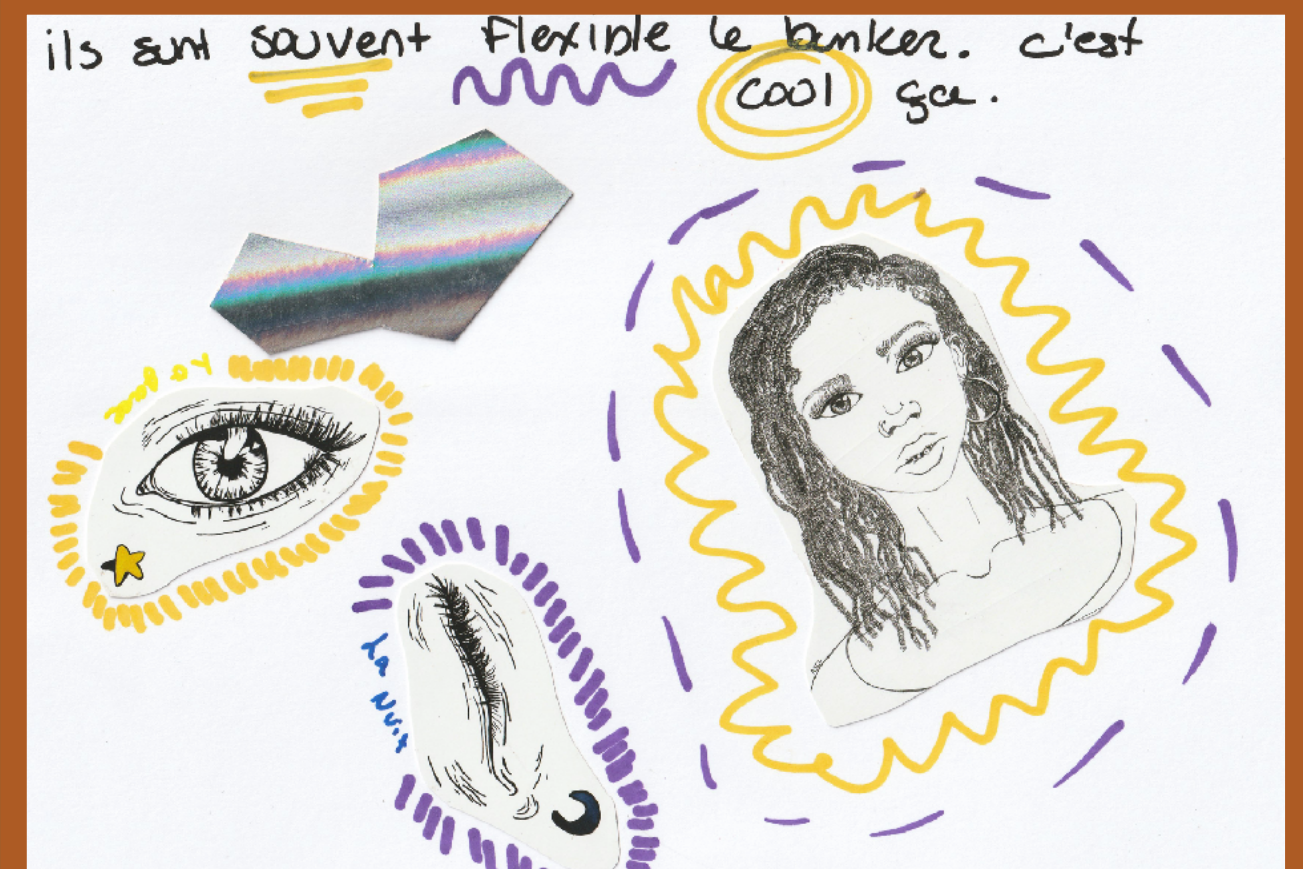 ils sont souvent flexible le bunker. c'est
cool ça.
La Nuit